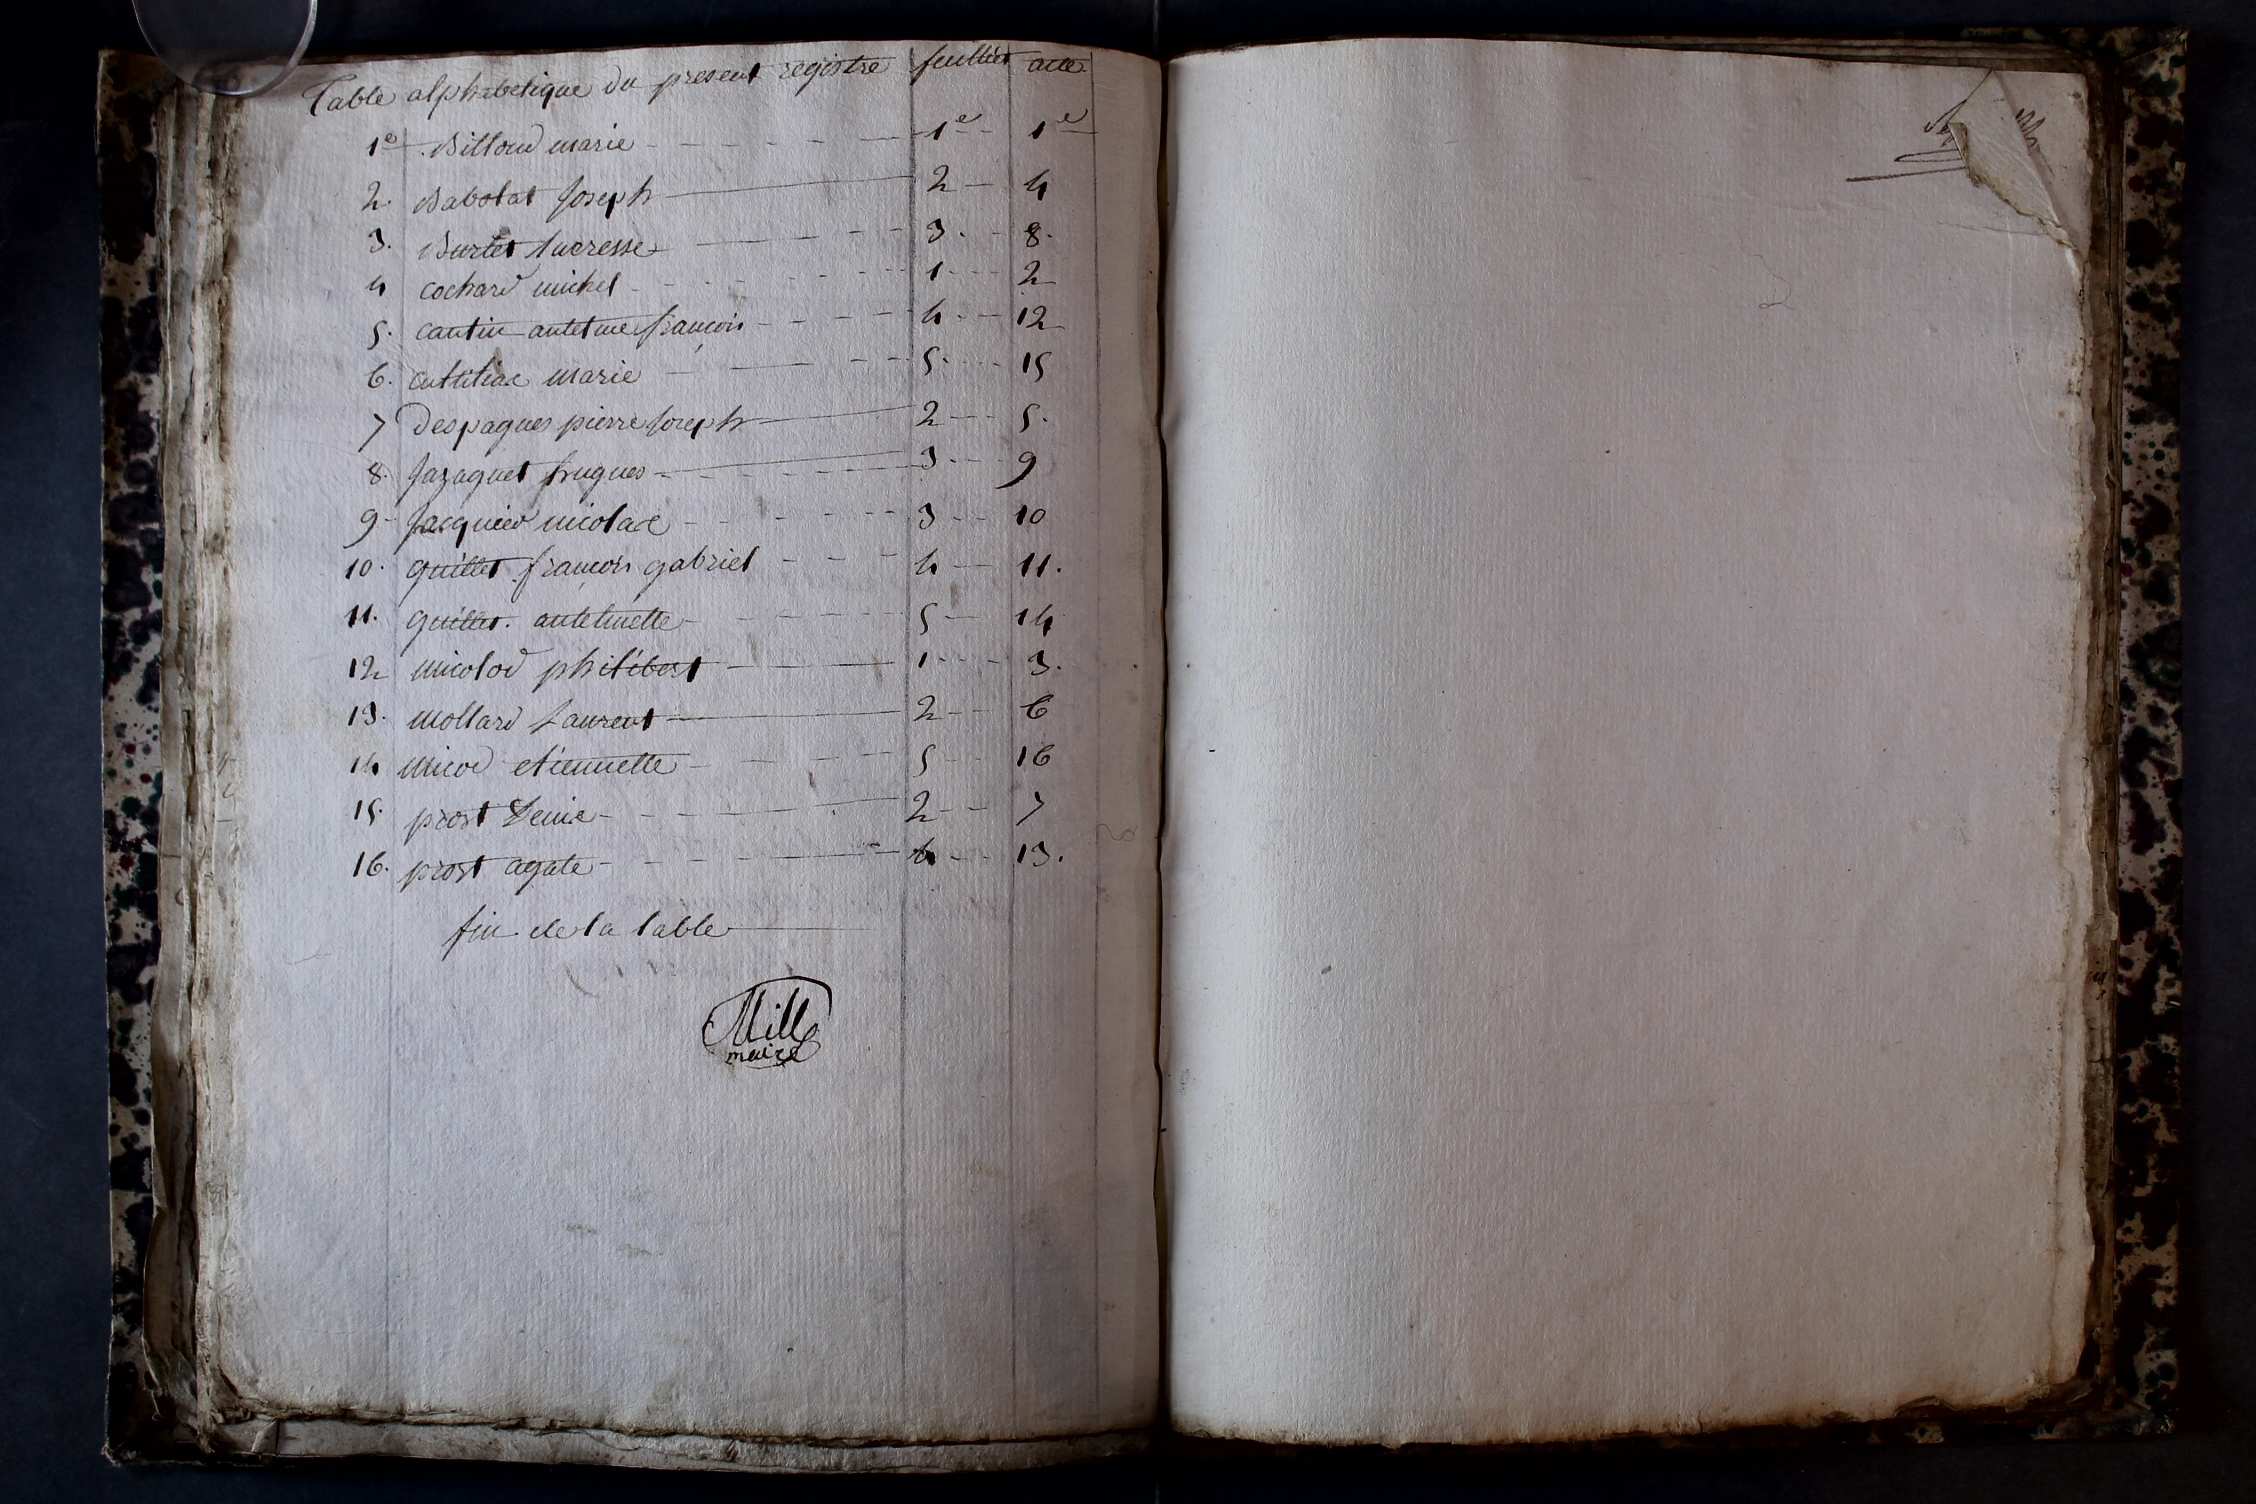 Table alphabetique du present registre feuillet acte
1e Billoud marie 1e 1e
2. Babolat Joseph 2 4
3. Burtet lucresse 3. 8.
4 cochard michel 1 2
5. cantin antelme françois 4 12
6. marie 5. 15
7 Despaques pierre Joseph 2 5.
8. Jazaquet hugues 3 9
9 Jacquier nicolas 3 10
10. quillet françois gabriel 4 11.
11. quillet. antelmette 5 14
12 micolod philibert 1 3.
13. mollard Laurent 2 6
14 micod etiennette 5 16
15. prost Denie 2 7
16. prost agate 4 13.
fin de la table
Mill
maire